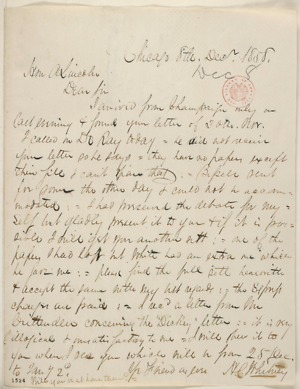 Chicago 8th. Decr. 1858.
Dec 8
Hon A Lincoln
Dear Sir
I arrived from Champaign only on
last evening & found your letter of 30th. Nov.
I called on Dr Ray today – he did not receive
your letter so he says – they have no papers except
their file & can't spare that; – Bissell sent
for some the other day & could not be accom
modated; – I had preserved the debates for my-
self but gladly present it to you & if it is pos-
sible I will get you another sett; – one of the
papers I had lost but White had an extra one which
he gave me; – please find the full sett herewith
& accept the same with my best regards; – the express
charges are paid; – I recd a letter from Mr
Crittenden concerning the "Dickey" letter; – it is very
& unsatisfactory to me – I will show it to
you when I see you which will be from 25 Dec.
to Jany 2d.
Yr friend as ever
H C Whitney
Will you be at home then